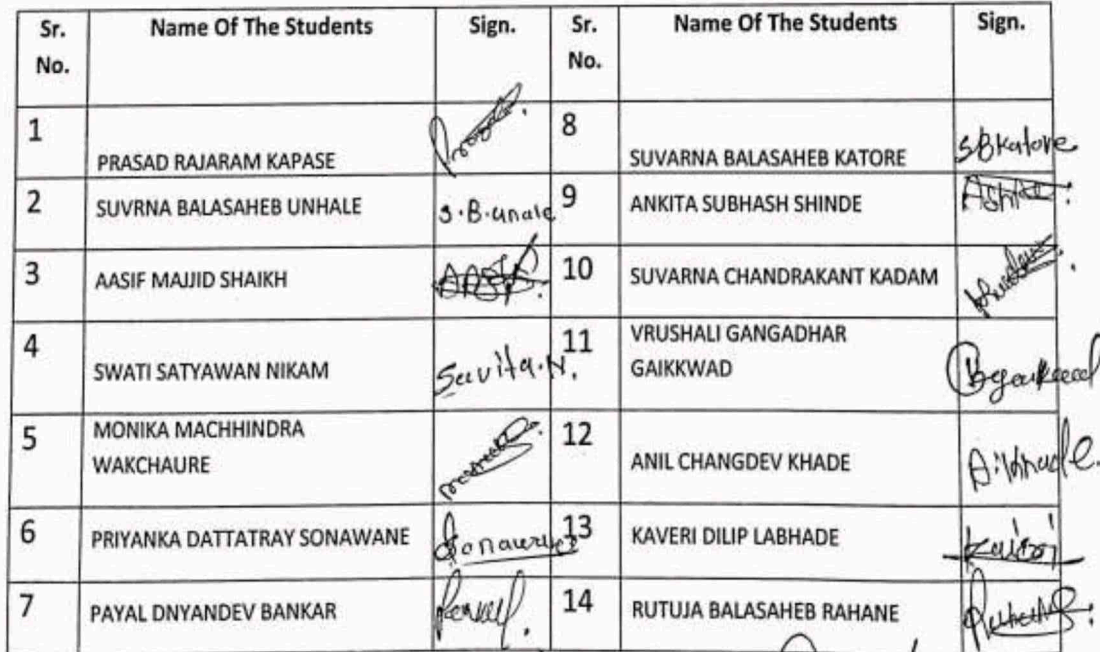 Sr. No. Name Of The Students Sign. Sr. No. Name Of The Students Sign.
1 PRASAD RAJARAM KAPASE 8 SUVARNA BALASAHEB KATORE SBKatore
2 SUVRNA BALASAHEB UNHALE S.B.unale 9 ANKITA SUBHASH SHINDE
3 AASIF MAJJID SHAIKH 10 SUVARNA CHANDRAKANT KADAM
4 SWATI SATYAWAN NIKAM Savita.N. 11 VRUSHALI GANGADHAR
GAIKKWAD
5 MONIKA MACHHINDRA
WAKCHAURE 12 ANIL CHANGDEV KHADE
6 PRIYANKA DATTATRAY SONAWANE 13 KAVERI DILIP LABHADE
7 PAYAL DNYANDEV BANKAR 14 RUTUJA BALASAHEB RAHANE